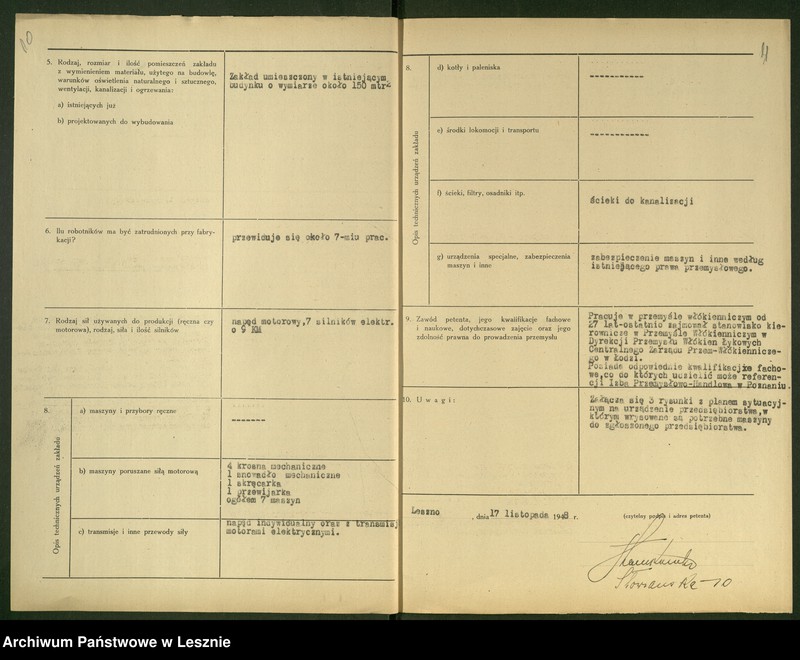 10
5. Rodzaj, rozmiar i ilość pomieszczeń zakładu
z wymienieniem materiału, użytego na budowlę,
warunków oświetlenia naturalnego i sztucznego,
wentylacji, kanalizacji i ogrzewania:
a) istniejących już
b) projektowanych do wybudowania
Zakład umieszczony w istniejącym
budynku o wymiarze około 150 mtr2
6. Ilu robotników ma być zatrudnionych przy fabry-
kacji?
przewiduje się około 7-miu prac.
7. Rodzaj sił używanych do produkcji (ręczna czy
motorowa), rodzaj, siła i ilość silników
napęd motorowy, 7 silników elektr.
o 5 KM
8.
Opis technicznych urządzeń zakładu
a) maszyny i przybory ręczne
-------
b) maszyny poruszane siłą motorową
4 krosna mechaniczne
1 snowadło mechaniczne
1 skręcarka
1 przewijarka
ogółem 7 maszyn
c) transmisje i inne przewody siły
napęd indywidualny oraz z transmisj
motorami elektrycznymi.
8.
Opis technicznych urządzeń zakładu
d) kotły i paleniska
------------
e) środki lokomocji i transportu
------------
f) ścieki, filtry, osadniki itp.
ścieki do kanalizacji
g) urządzenia specjalne, zabezpieczenia
maszyn i inne
zabezpieczenie maszyn i inne według
istniejącego prawa przemysłowego.
9. Zawód petenta, jego kwalifikacje fachowe
i naukowe, dotychczasowe zajęcie oraz jego
zdolność prawna do prowadzenia przemysłu
Pracuje w przemyśle włókienniczym od
27 lat-ostatnio zajmował stanowisko kie-
rownicze w Przemyśle Włókienniczym w
Dyrekcji Przemysłu Włókien Łykowych
Centralnego Zarządu Przem-Włókiennicze-
go w Łodzi.
Posiada odpowiednie kwalifikacje facho-
we, co do których udzielić może referen-
cji Izba Przemysłowo-Handlowa w Poznaniu.
10. Uwagi:
Załącza się 3 rysunki z planem sytuacyj-
nym na urządzenie przedsiębiorstwa, w
którym wrysowane są potrzebne maszyny
do zgłoszonego przedsiębiorstwa.
Leszno, dnia 17 listopada 1948 r.
(czytelny podpis i adres petenta)
10
Archiwum Państwowe w Lesznie